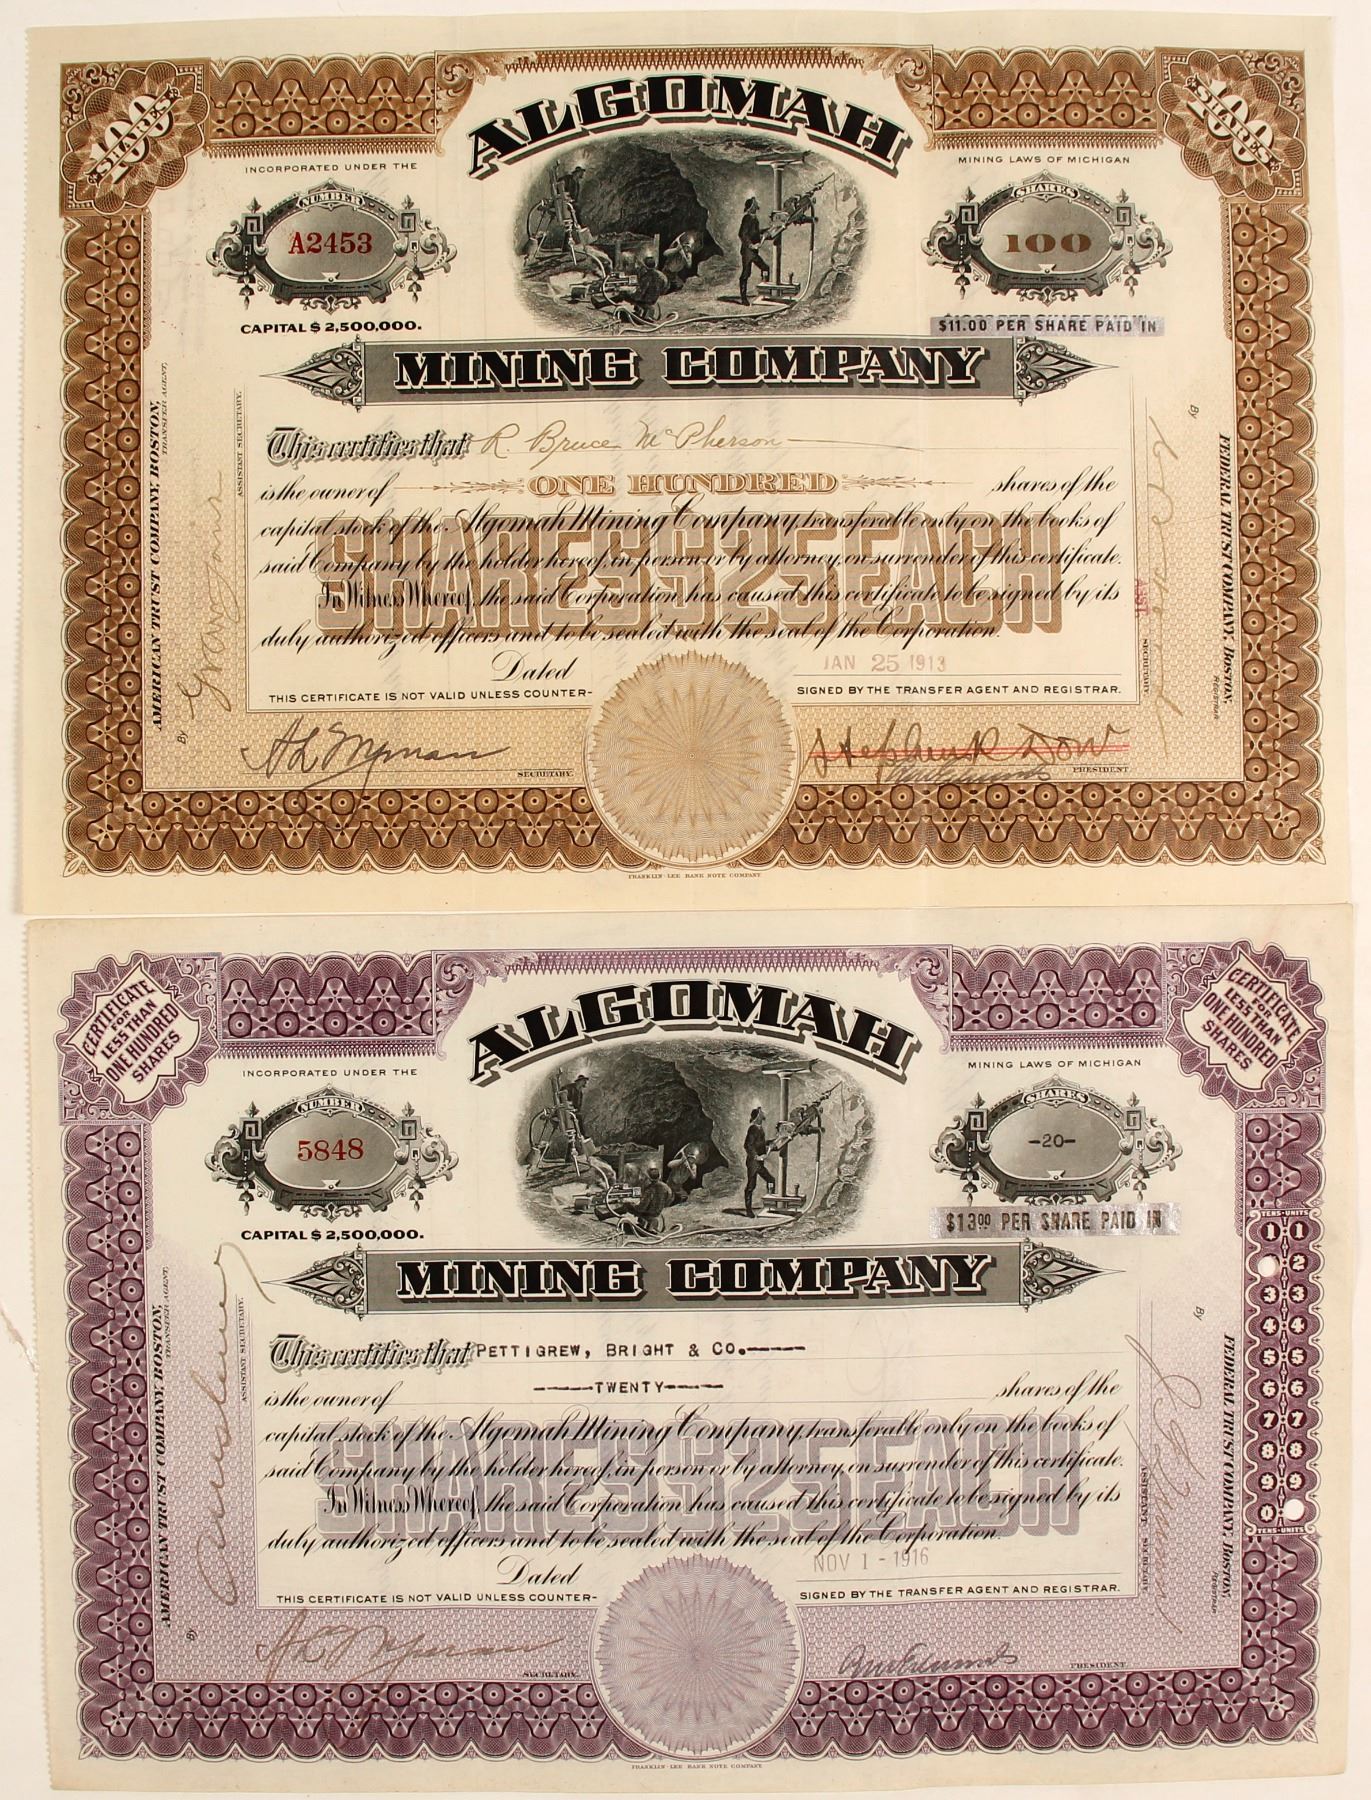 100 SHARES
100 SHARES
ALGOMAH
INCORPORATED UNDER THE
MINING LAWS OF MICHIGAN
NUMBER
A2453
SHARES
100
CAPITAL $2,500,000.
$11.00 PER SHARE PAID IN
MINING COMPANY
This certifies that R. Bruce McPherson
is the owner of ONE HUNDRED shares of the
capital stock of the Algomah Mining Company, transferable only on the books of
said Company by the holder hereof, in person or by attorney, on surrender of this certificate.
In Witness Whereof, the said Corporation has caused this certificate to be signed by its
duly authorized officers and to be sealed with the seal of the Corporation.
SHARES $25 EACH
Dated JAN 25 1913
THIS CERTIFICATE IS NOT VALID UNLESS COUNTER-
SIGNED BY THE TRANSFER AGENT AND REGISTRAR.
SECRETARY.
Stephen R Dow
PRESIDENT
AMERICAN TRUST COMPANY, BOSTON,
TRANSFER AGENT,
By
ASSISTANT SECRETARY.
FEDERAL TRUST COMPANY, BOSTON,
REGISTRAR
By
ASST. SECRETARY
FRANKLIN-LEE BANK NOTE COMPANY
CERTIFICATE
FOR
LESS THAN
ONE HUNDRED
SHARES
CERTIFICATE
FOR
LESS THAN
ONE HUNDRED
SHARES
ALGOMAH
INCORPORATED UNDER THE
MINING LAWS OF MICHIGAN
NUMBER
5848
SHARES
-20-
CAPITAL $2,500,000.
$13.00 PER SHARE PAID IN
MINING COMPANY
This certifies that PETTIGREW, BRIGHT & CO.-----
is the owner of -----TWENTY----- shares of the
capital stock of the Algomah Mining Company, transferable only on the books of
said Company by the holder hereof, in person or by attorney, on surrender of this certificate.
In Witness Whereof, the said Corporation has caused this certificate to be signed by its
duly authorized officers and to be sealed with the seal of the Corporation.
SHARES $25 EACH
Dated NOV 1 - 1916
THIS CERTIFICATE IS NOT VALID UNLESS COUNTER-
SIGNED BY THE TRANSFER AGENT AND REGISTRAR.
SECRETARY.
PRESIDENT
AMERICAN TRUST COMPANY, BOSTON,
TRANSFER AGENT,
By
ASSISTANT SECRETARY.
FEDERAL TRUST COMPANY, BOSTON,
REGISTRAR
By
ASSISTANT SECRETARY
TENS-UNITS
1 1
2
3 3
4 4
5 5
6 6
7 7
8 8
9 9
0
TENS-UNITS
FRANKLIN-LEE BANK NOTE COMPANY